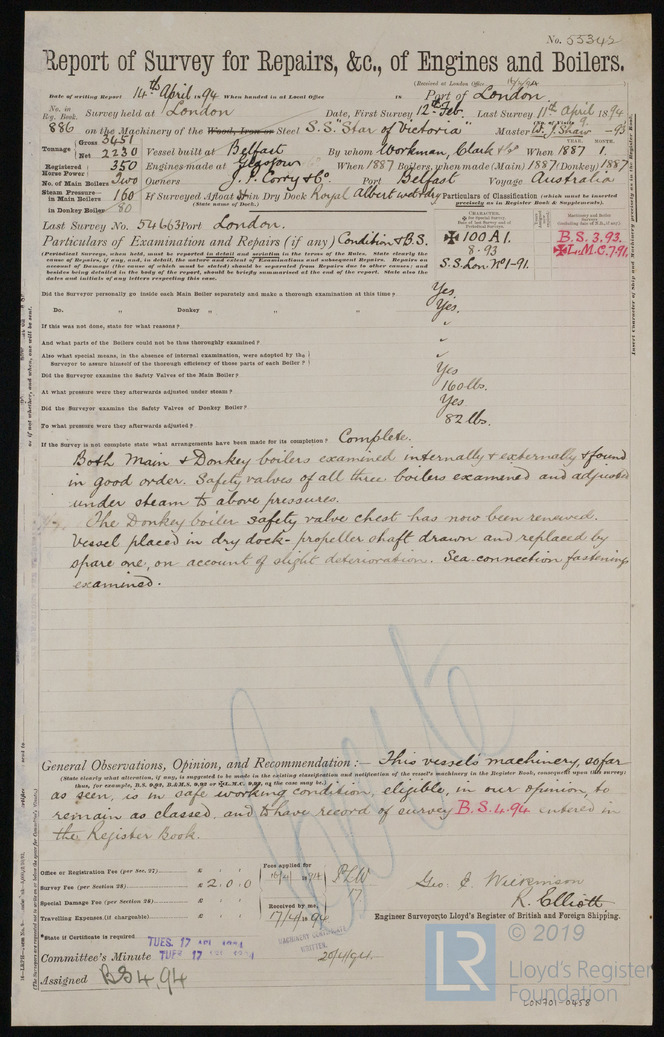 No. 55342
Report of Survey for Repairs, &c., of Engines and Boilers.
(Received at London Office
Date of writing Report 14th April 1894 When handed in at Local Office
Port of London.
No. in Reg. Book. Survey held at London Date, First Survey 12th Feb. Last Survey 11th April 1894
886 on the Machinery of the Wood, Iron or Steel S.S. "Star of Victoria" Master W. J. Shaw - 93
Tonnage Gross 3451 Net 2230 Vessel built at Belfast By whom Workman, Clark & Co When 1887 1
Registered Horse Power 350 Engines made at Glasgow When 1887 Boilers, when made (Main) 1887 (Donkey) 1887
No. of Main Boilers Two Owners J. P. Corry & Co. Port Belfast Voyage Australia
Steam Pressure in Main Boilers 160 If Surveyed Afloat & in Dry Dock Royal Albert wet & dry
(State name of Dock.)
in Donkey Boiler 80
Particulars of Classification (which must be inserted precisely as in Register Book & Supplements).
Last Survey No. 54663 Port London.
Particulars of Examination and Repairs (if any) Condition & B.S.
✠ 100A1.
8-93
S.S. Lon. No1-91.
B.S. 3.93.
✠L.M.C. 7.91.
Did the Surveyor personally go inside each Main Boiler separately and make a thorough examination at this time? Yes.
Do. " Donkey " " " Yes.
If this was not done, state for what reasons? "
And what parts of the Boilers could not be thus thoroughly examined? "
Also what special means, in the absence of internal examination, were adopted by the Surveyor to assure himself of the thorough efficiency of those parts of each Boiler? "
Did the Surveyor examine the Safety Valves of the Main Boiler? Yes
At what pressure were they afterwards adjusted under steam? 160 lbs.
Did the Surveyor examine the Safety Valves of Donkey Boiler? Yes
To what pressure were they afterwards adjusted? 82 lbs.
If the Survey is not complete state what arrangements have been made for its completion? Complete.
Both Main & Donkey boilers examined internally & externally & found
in good order. Safety valves of all three boilers examined and adjusted
under steam to above pressures.
The Donkey boiler safety valve chest has now been renewed.
Vessel placed in dry dock - propeller shaft drawn and replaced by
spare one, on account of slight deterioration. Sea-connection fastenings
examined.
General Observations, Opinion, and Recommendation:— This vessel's machinery, so far
(State clearly what alteration, if any, is suggested to be made in the existing classification and notification of the vessel's machinery in the Register Book, consequent upon this survey;
as seen, is in safe working condition, eligible, in our opinion, to
remain as classed, and to have record of survey B.S. 4.94 entered in
the Register Book.
Office or Registration Fee (per Sec. 27) £
Survey Fee (per Section 28) £ 2.0.0
Special Damage Fee (per Section 28) £
Travelling Expenses (if chargeable) £
Fees applied for
Received by me,
17/4/1894
Geo. C. Wilkinson
R. Elliott
Engineer Surveyor to Lloyd's Register of British and Foreign Shipping.
*State if Certificate is required
Committee's Minute TUES. 17 APL 1894
MACHINERY CERTIFICATE
WRITTEN.
20/4/94.
Assigned BS 4.94
© 2019
LR
Lloyd's Register
Foundation
LON701-0458